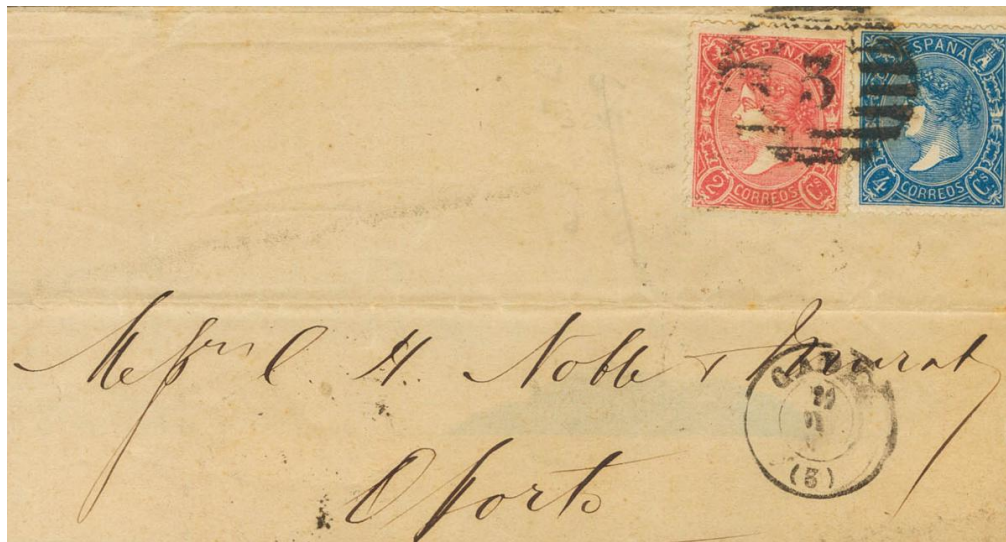 ESPAÑA
2 CORREOS Cs
ESPAÑA
4 CORREOS Cs
3
Messrs C. H. Noble &
(3)
Oporto